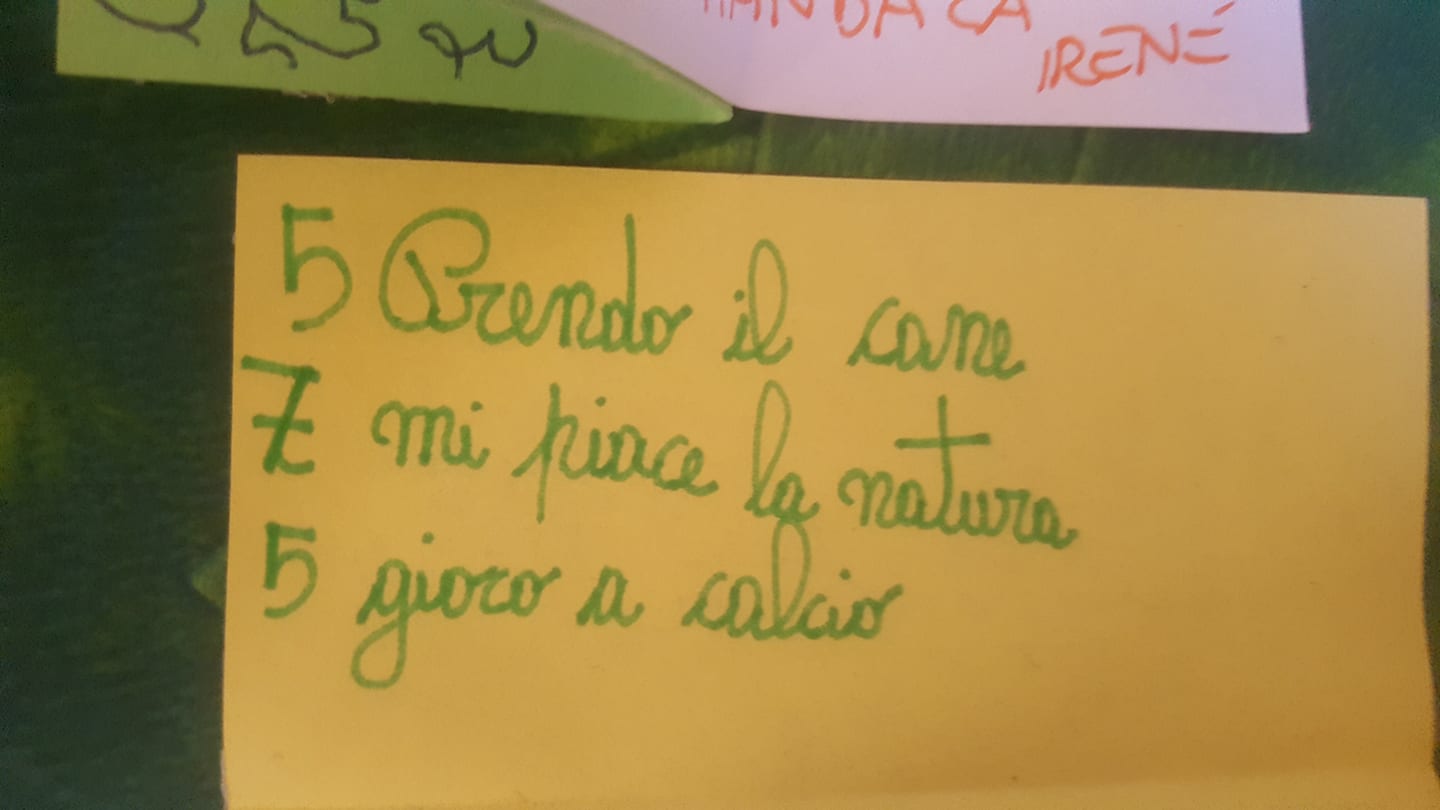 IRENÉ
5 Prendo il cane
7 mi piace la natura
5 gioco a calcio